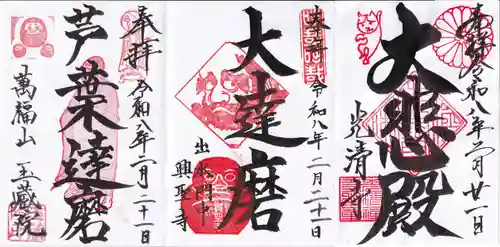 奉拝
令和八年二月二十一日
大悲殿
光清寺
奉拝
令和八年二月二十一日
大達磨
出水門中
興聖寺
奉拝
令和八年二月二十一日
芦葉達磨
萬福山 玉蔵院